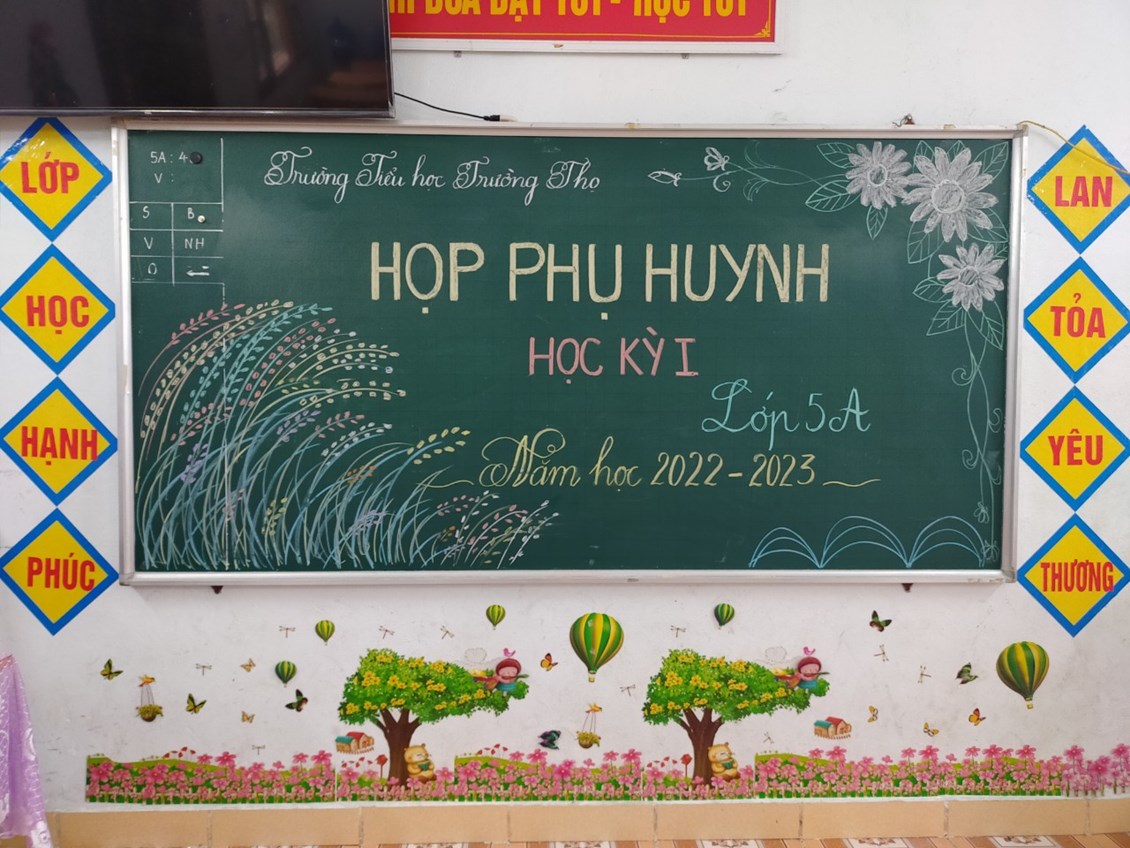 ĐẠT TỐT - HỌC TỐT
LỚP
HỌC
HẠNH
PHÚC
5A : 4
V :
S B
V NH
Trường Tiểu học Trường Thọ
HỌP PHỤ HUYNH
HỌC KỲ I
Lớp 5A
Năm học 2022-2023
LAN
TỎA
YÊU
THƯƠNG